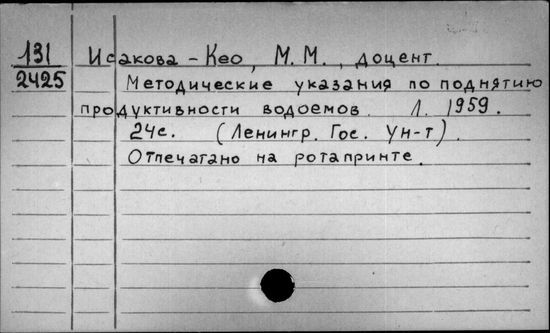 131 Исакова-Кео, М.М., доцент.
2425 Методические указания по поднятию
продуктивности водоемов. Л. 1959.
24с. (Ленингр. Гос. Ун-т).
Отпечатано на ротапринте.